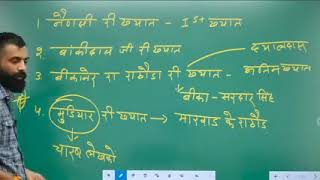 1 नैणसी री ख्यात - Ist ख्यात
2. बांकीदास जी री ख्यात
दयालदास
3 बीकानेर रा राठौडा री ख्यात - अंतिम ख्यात
बीका - सरदार सिंह
4. मुंडियार री ख्यात → मारवाड के राठौड
चारण लेखको